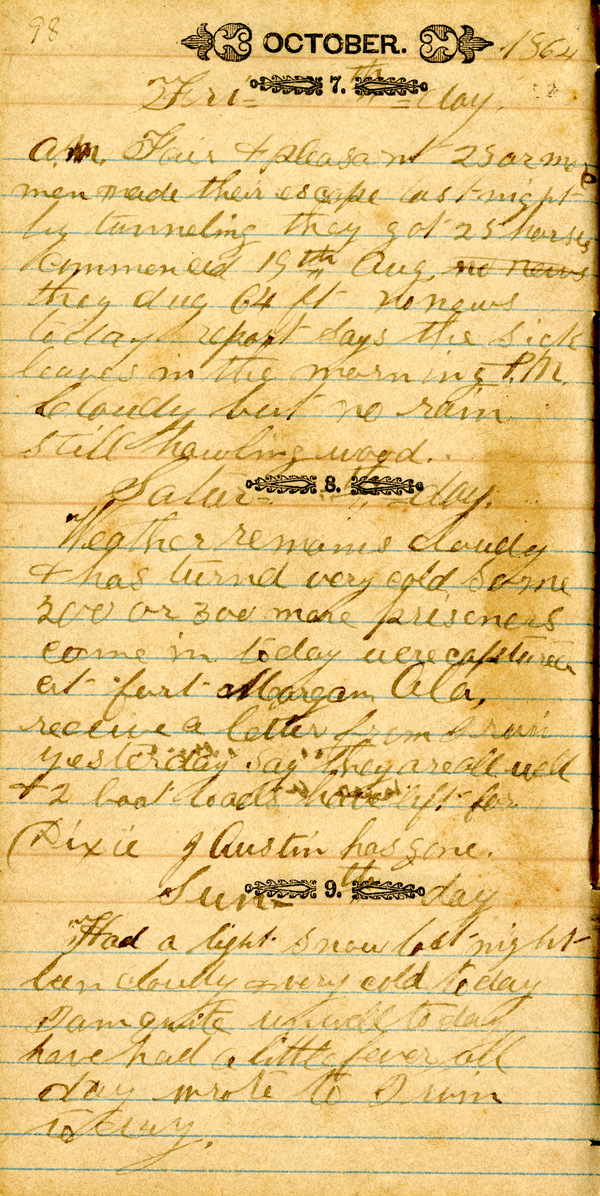 98
OCTOBER. 1864
7.
Fri= th =day.
A.M. Fair & pleasant 25 or more
men made their escape last night
by tunneling they got 25 horses
Commenced 19th Aug. no news
they dug 64 ft no news
today report says the sick
leaves in the morning P.M.
Cloudy but no rain
still hawling wood.
8.
Satur= th =day.
Weather remains cloudy
& has turnd very cold some
200 or 300 more prisoners
come in today were captured
at fort Morgan Ala,
receive a letter from Irvin
yesterday say they are all well
& 2 boat loads have left for
Dixie J Austin has gone.
9.
Sun= th day
Had a light snow last night
been cloudy & very cold today
I am quite unwell today
have had a little fever all
day wrote to Irvin
today.